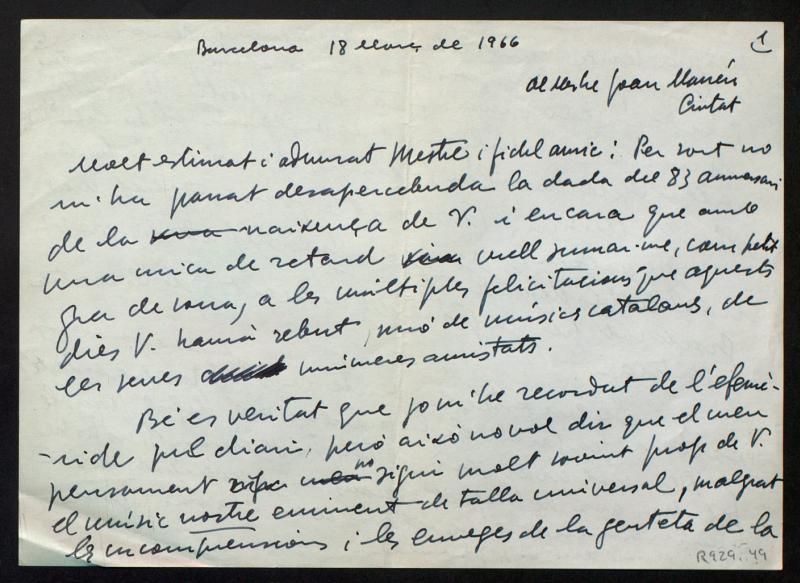 1
Barcelona 18 Març de 1966
Mestre Joan Manén
Ciutat
Molt estimat i admirat Mestre i fidel amic: Per sort no
m'ha passat desapercebuda la dada del 83 aniversari
de la naixença de V. i encara que amb
una mica de retard vull sumar-me, com petit
gra de sorra, a les múltiples felicitacions que aquests
dies V. haurà rebut, no de músics catalans, de
les seves inúmeres amistats.
Bé es veritat que jo m'he recordut de l'efemè-
ride pel diari, però això no vol dir que el meu
pensament no sigui molt sovint prop de V.
el músic nostre eminent de talla universal, malgrat
les incomprensions i les enveges de la genteta de la
R929.49